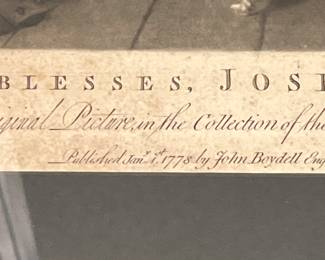 BLESSES, JOSE
iginal Picture, in the Collection of the
Published Janʸ. 1ˢᵗ. 1778 by John Boydell Eng